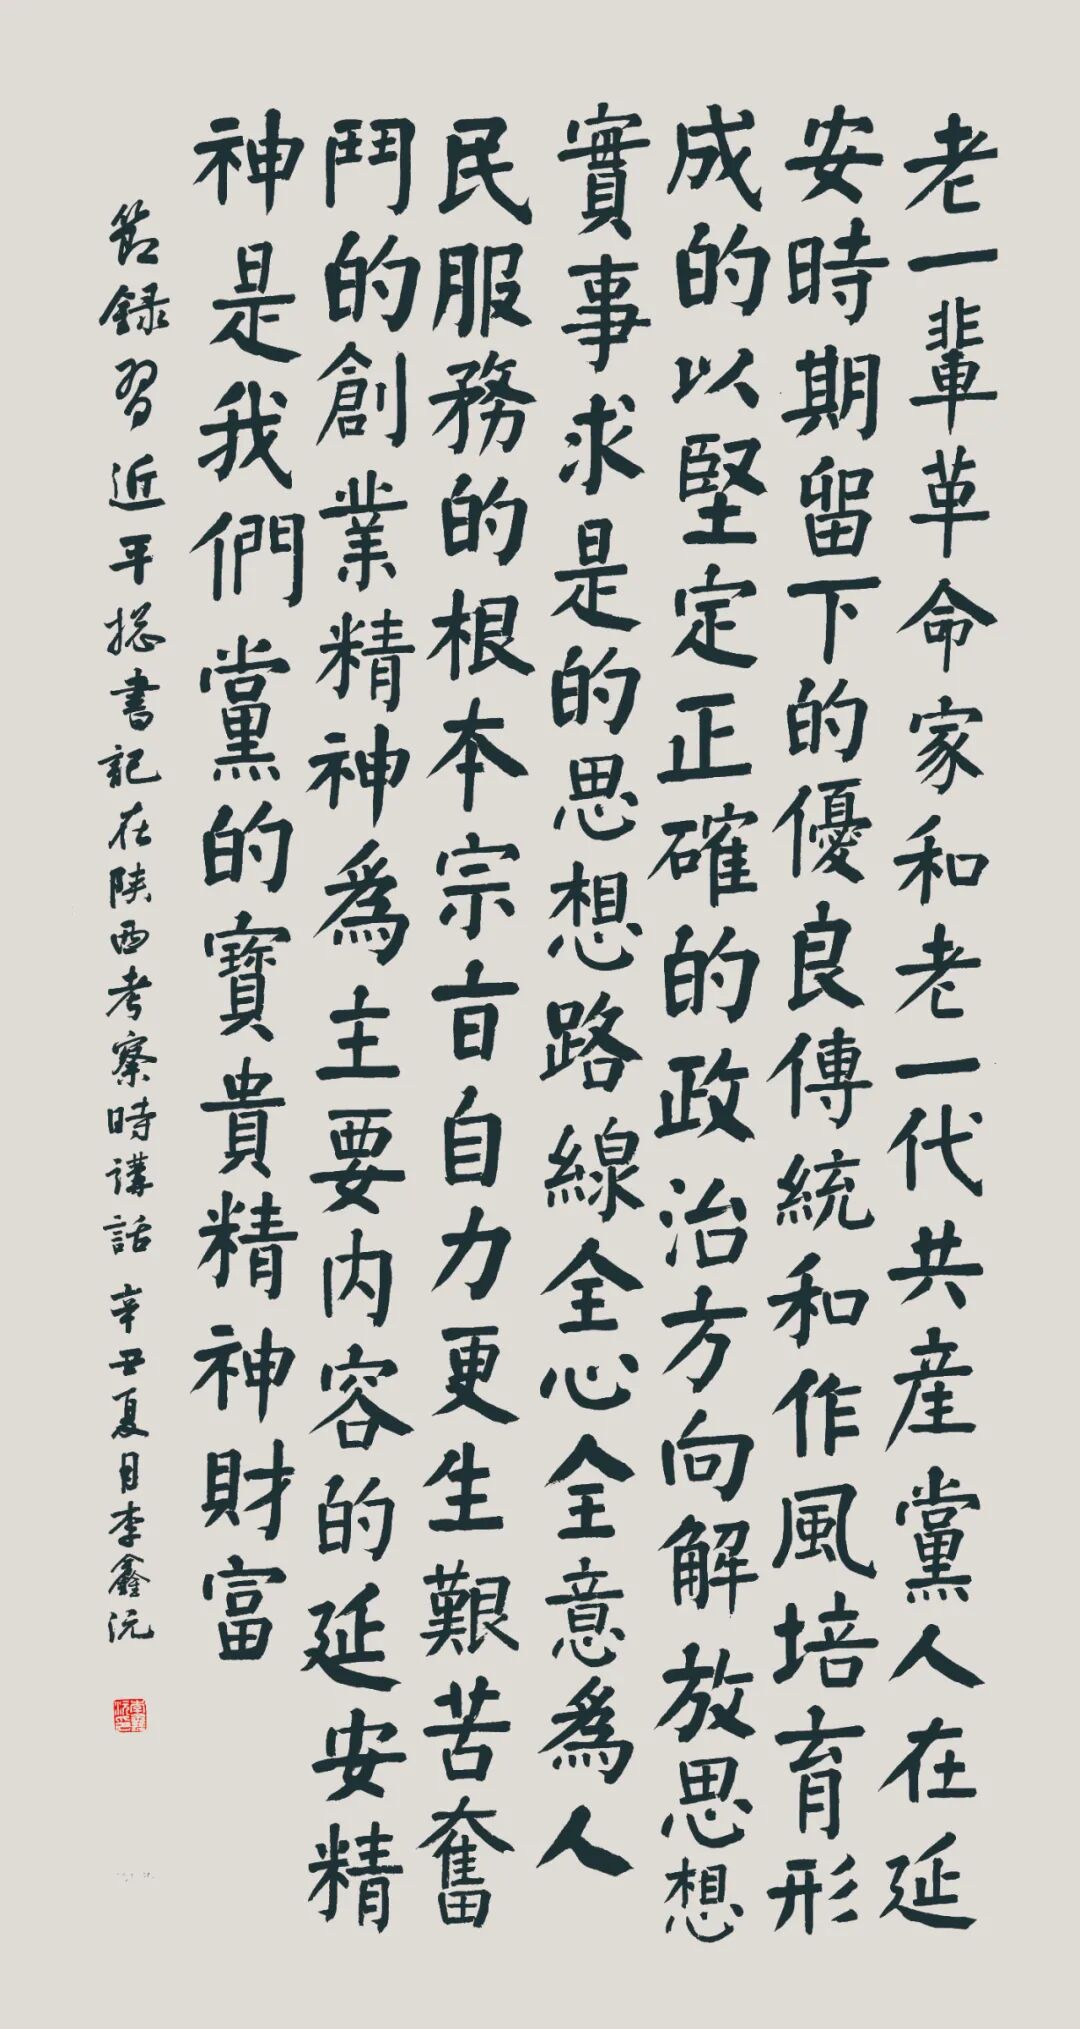 老一輩革命家和老一代共産黨人在延
安時期留下的優良傳統和作風培育形
成的以堅定正確的政治方向解放思想
實事求是的思想路線全心全意為人
民服務的根本宗旨自力更生艱苦奮
鬥的創業精神為主要内容的延安精
神是我們黨的寶貴精神財富
節録習近平總書記在陕西考察時講話 辛丑夏月李鑫沅